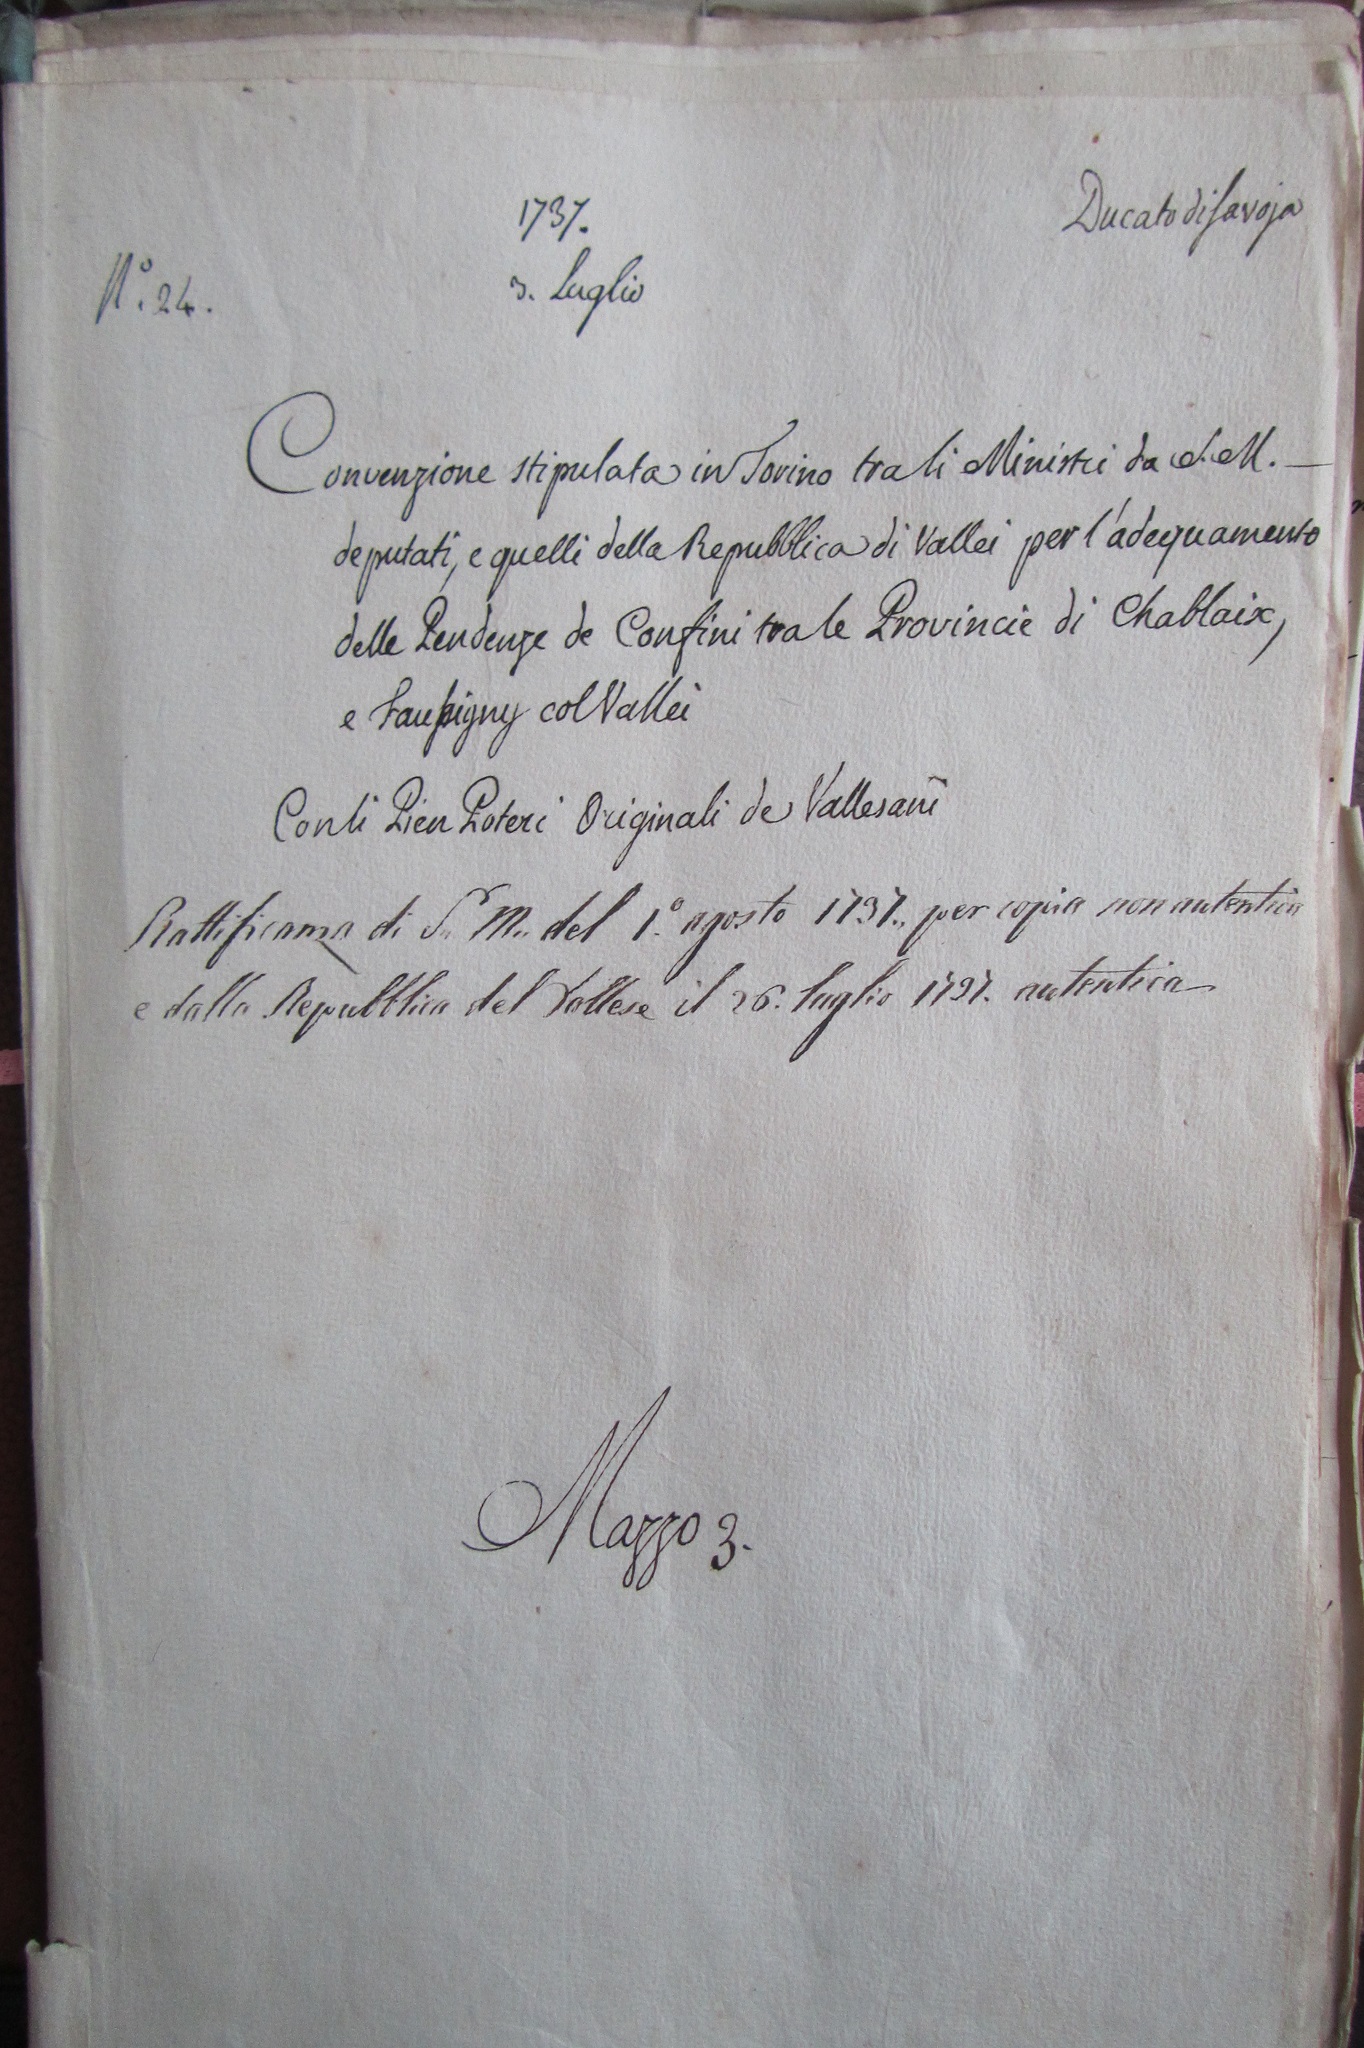 1737.
Ducato di Savoja
N.º 24.
3. Luglio
Convenzione stipulata in Torino tra li Ministri da S. M. —
deputati, e quelli della Repubblica di Vallei per l'adequamento
delle Pendenze de Confini tra le Provincie di Chablaix,
e Faussigny col Vallei
Con li Pien Poteri Originali de Vallesani
di S. M. del 1.º agosto 1737., per copia non autentica
e dalla Repubblica del Vallese il 26. luglio 1737. autentica
Mazzo 3.